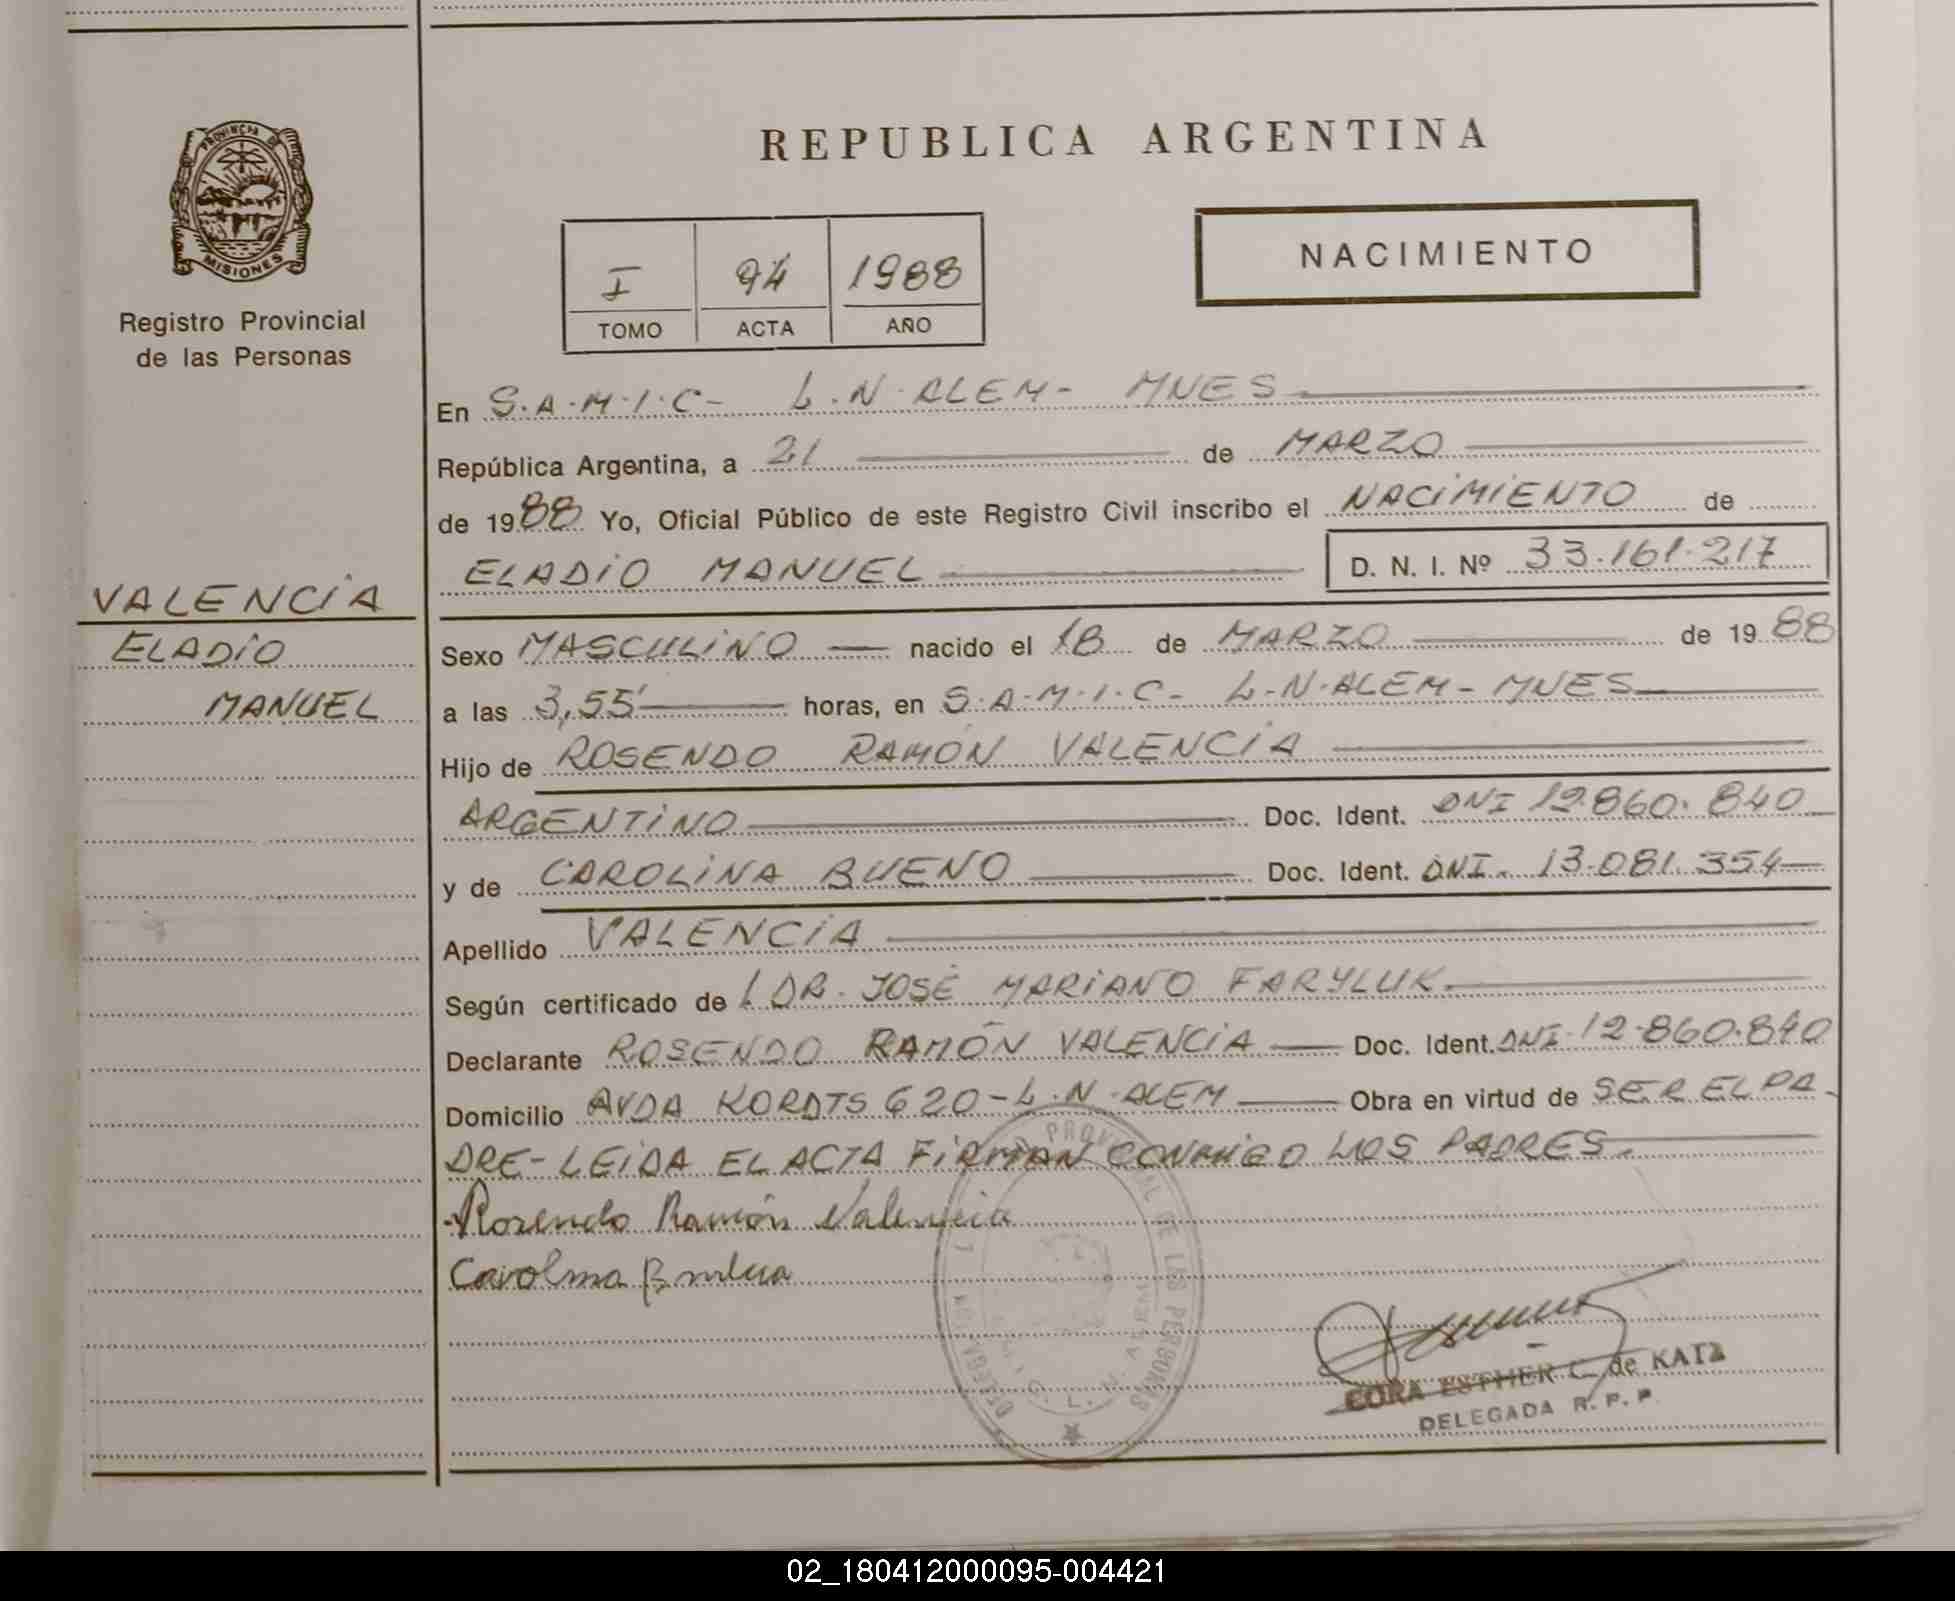 PROVINCIA DE
MISIONES
Registro Provincial
de las Personas
VALENCIA
ELADIO
MANUEL
REPUBLICA ARGENTINA
I 94 1988
TOMO ACTA AÑO
NACIMIENTO
En S.A.M.I.C- L.N.ALEM- MNES
República Argentina, a 21 de MARZO
de 1988 Yo, Oficial Público de este Registro Civil inscribo el NACIMIENTO de
ELADIO MANUEL D. N. I. Nº 33.161.217
Sexo MASCULINO nacido el 18 de MARZO de 1988
a las 3,55' horas, en S.A.M.I.C- L.N.ALEM- MNES
Hijo de ROSENDO RAMÓN VALENCIA
ARGENTINO Doc. Ident. DNI 12.860.840
y de CAROLINA BUENO Doc. Ident. DNI. 13.081.354
Apellido VALENCIA
Según certificado de DR. JOSÉ MARIANO FARYLUK.
Declarante ROSENDO RAMÓN VALENCIA Doc. Ident. DNI 12.860.840
Domicilio AVDA KORDTS 620-L.N.ALEM Obra en virtud de SER EL PA-
DRE-LEIDA EL ACTA FIRMAN CONMIGO LOS PADRES.
Rosendo Ramón Valencia
Carolina
PROVINCIAL DE LAS PERSONAS
L. N. ALEM
CORA ESTHER C. de KATZ
DELEGADA R. P. P.
02_180412000095-004421